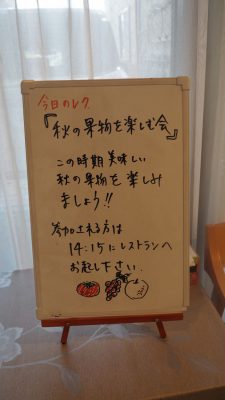 今日のレク
『秋の果物を楽しむ会』
この時期美味しい
秋の果物を楽しみ
ましょう!!
参加される方は
14:15にレストランへ
お起し下さい.